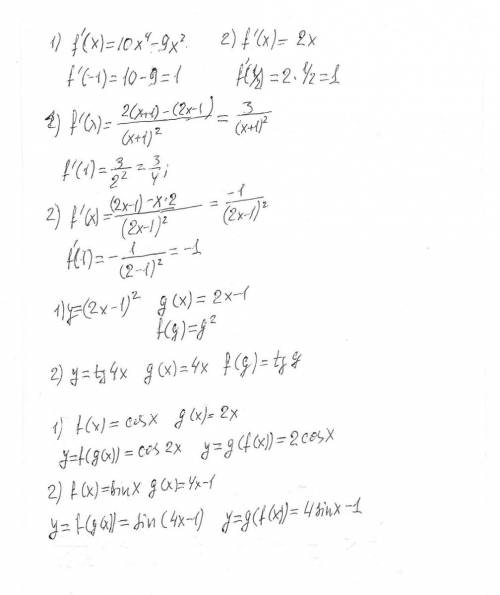 1) f'(x)=10x⁴-9x² 2) f'(x)= 2x
f'(-1)=10-9=1 f'(½)=2·½=1
2) f'(x)= (2(x+1)-(2x-1))/(x+1)² = 3/(x+1)²
f'(1)= 3/2² = 3/4;
2) f'(x)= ((2x-1)-x·2)/(2x-1)² = -1/(2x-1)²
f'(1)= -1/(2-1)² = -1
1) y=(2x-1)² g(x)=2x-1
f(g)=g²
2) y=tg4x g(x)=4x f(g)=tg g
1) f(x)=cosx g(x)=2x
y=f(g(x))=cos2x y=g(f(x))=2cosx
2) f(x)=sinx g(x)=4x-1
y=f(g(x))=sin(4x-1) y=g(f(x))=4sinx-1